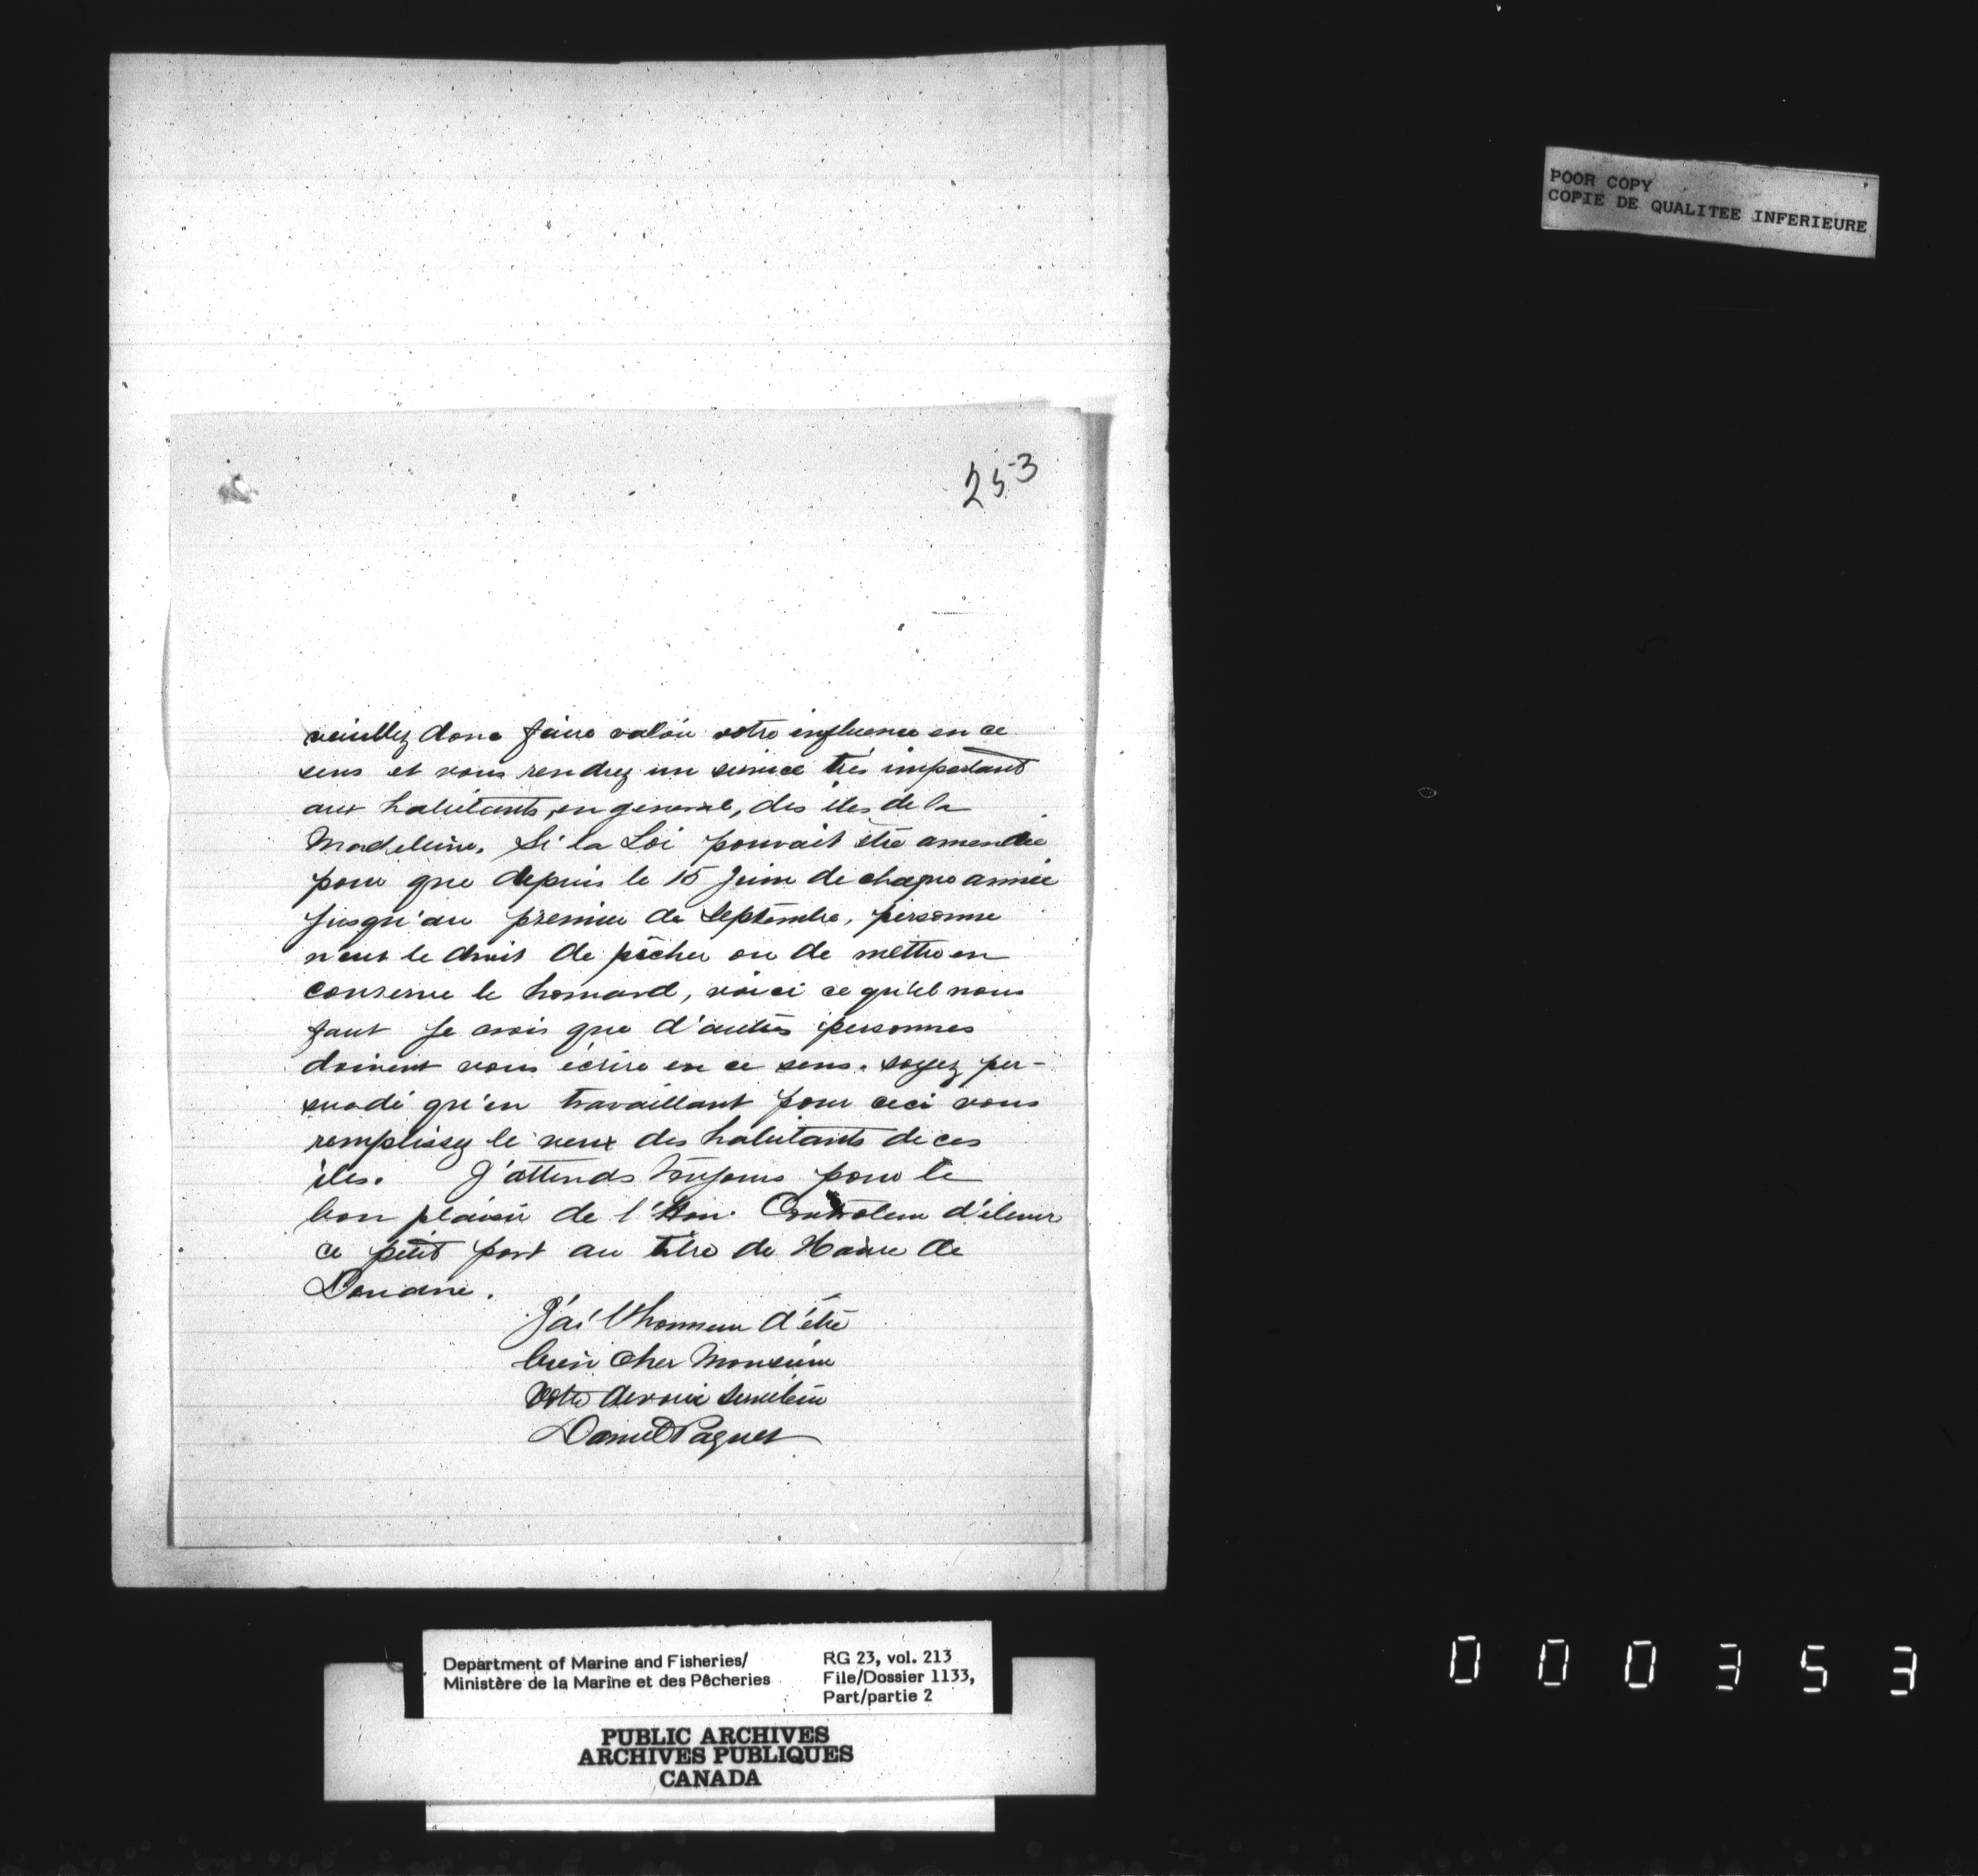 POOR COPY
COPIE DE QUALITEE INFERIEURE
253
veuillez donc faire valoir votre influence en ce
sens et vous rendrez un service très important
aux habitants, en general, des iles de la
Madeleine. Si la Loi pouvait être amendée
pour que depuis le 15 Juin de chaque année
jusqu'au premier de Septembre, personne
n'eut le droit de pêcher ou de mettre en
conserve le homard, voici ce qu'il nous
faut Je crois que d'autres personnes
doivent vous écrire en ce sens. soyez per-
suadé qu'en travaillant pour ceci vous
remplissez le veux des habitants de ces
iles. J'attends toujours pour le
bon plaisir de l'Hon. Controleur d'élever
ce petit port au titre de Havre de
Douane.
J'ai l'honneur d'être
bien cher Monsieur
Votre devoué serviteur
Daniel Paquet
Department of Marine and Fisheries/
Ministère de la Marine et des Pêcheries
RG 23, vol. 213
File/Dossier 1133,
Part/partie 2
PUBLIC ARCHIVES
ARCHIVES PUBLIQUES
CANADA
000353